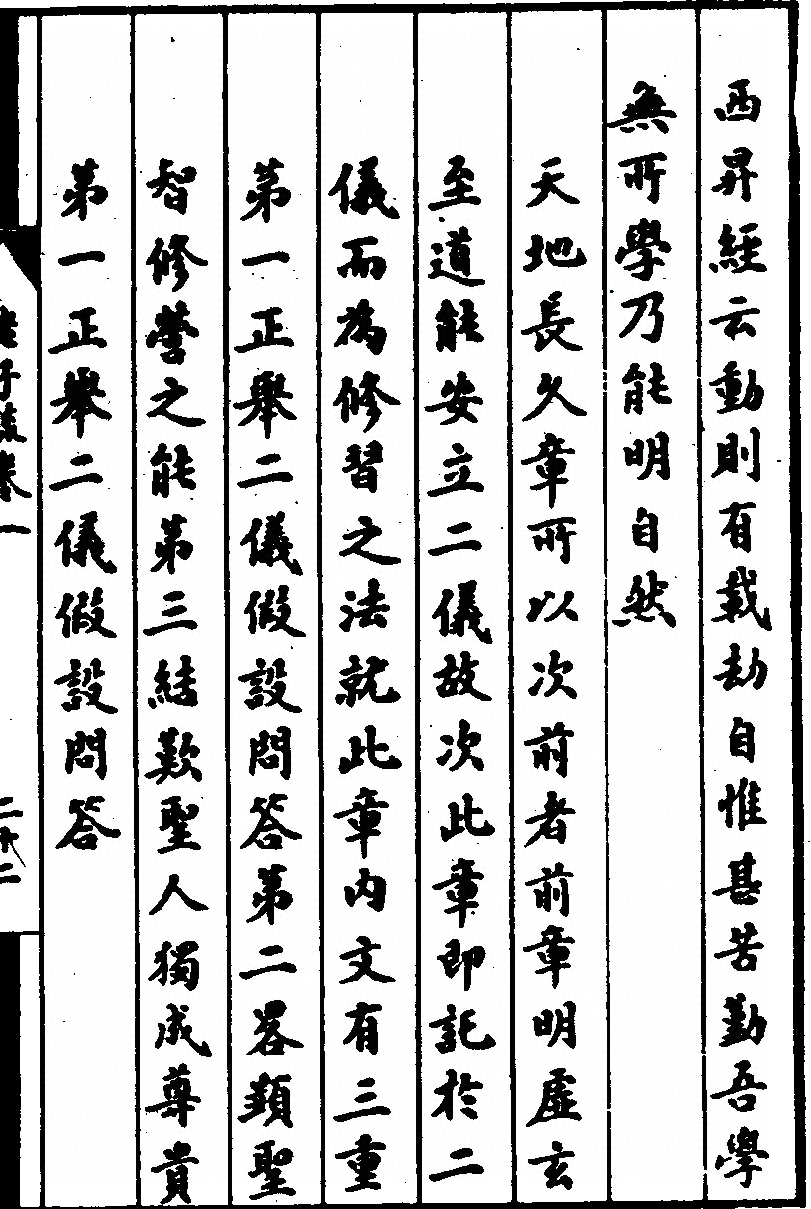 西昇經云動則有載劫自惟甚苦勤吾學
無所學乃能明自然
天地長久章所以次前者前章明虛玄
至道能安立二儀故次此章即託於二
儀而為修習之法就此章內文有三重
第一正舉二儀假設問答第二畧顯聖
智修營之能第三結歎聖人獨成尊貴
第一正舉二儀假設問答
老子疏卷一
二十二